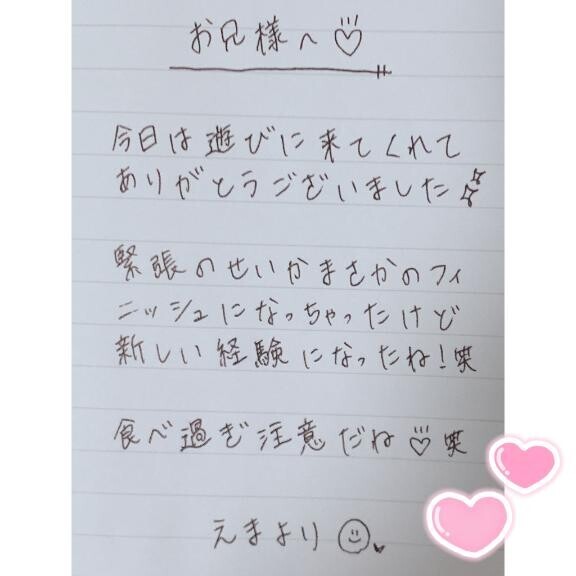 お兄様へ♡
今日は遊びに来てくれて
ありがとうございました
緊張のせいかまさかのフィ
ニッシュになっちゃったけど
新しい経験になったね!笑
食べ過ぎ注意だね♡笑
えまより